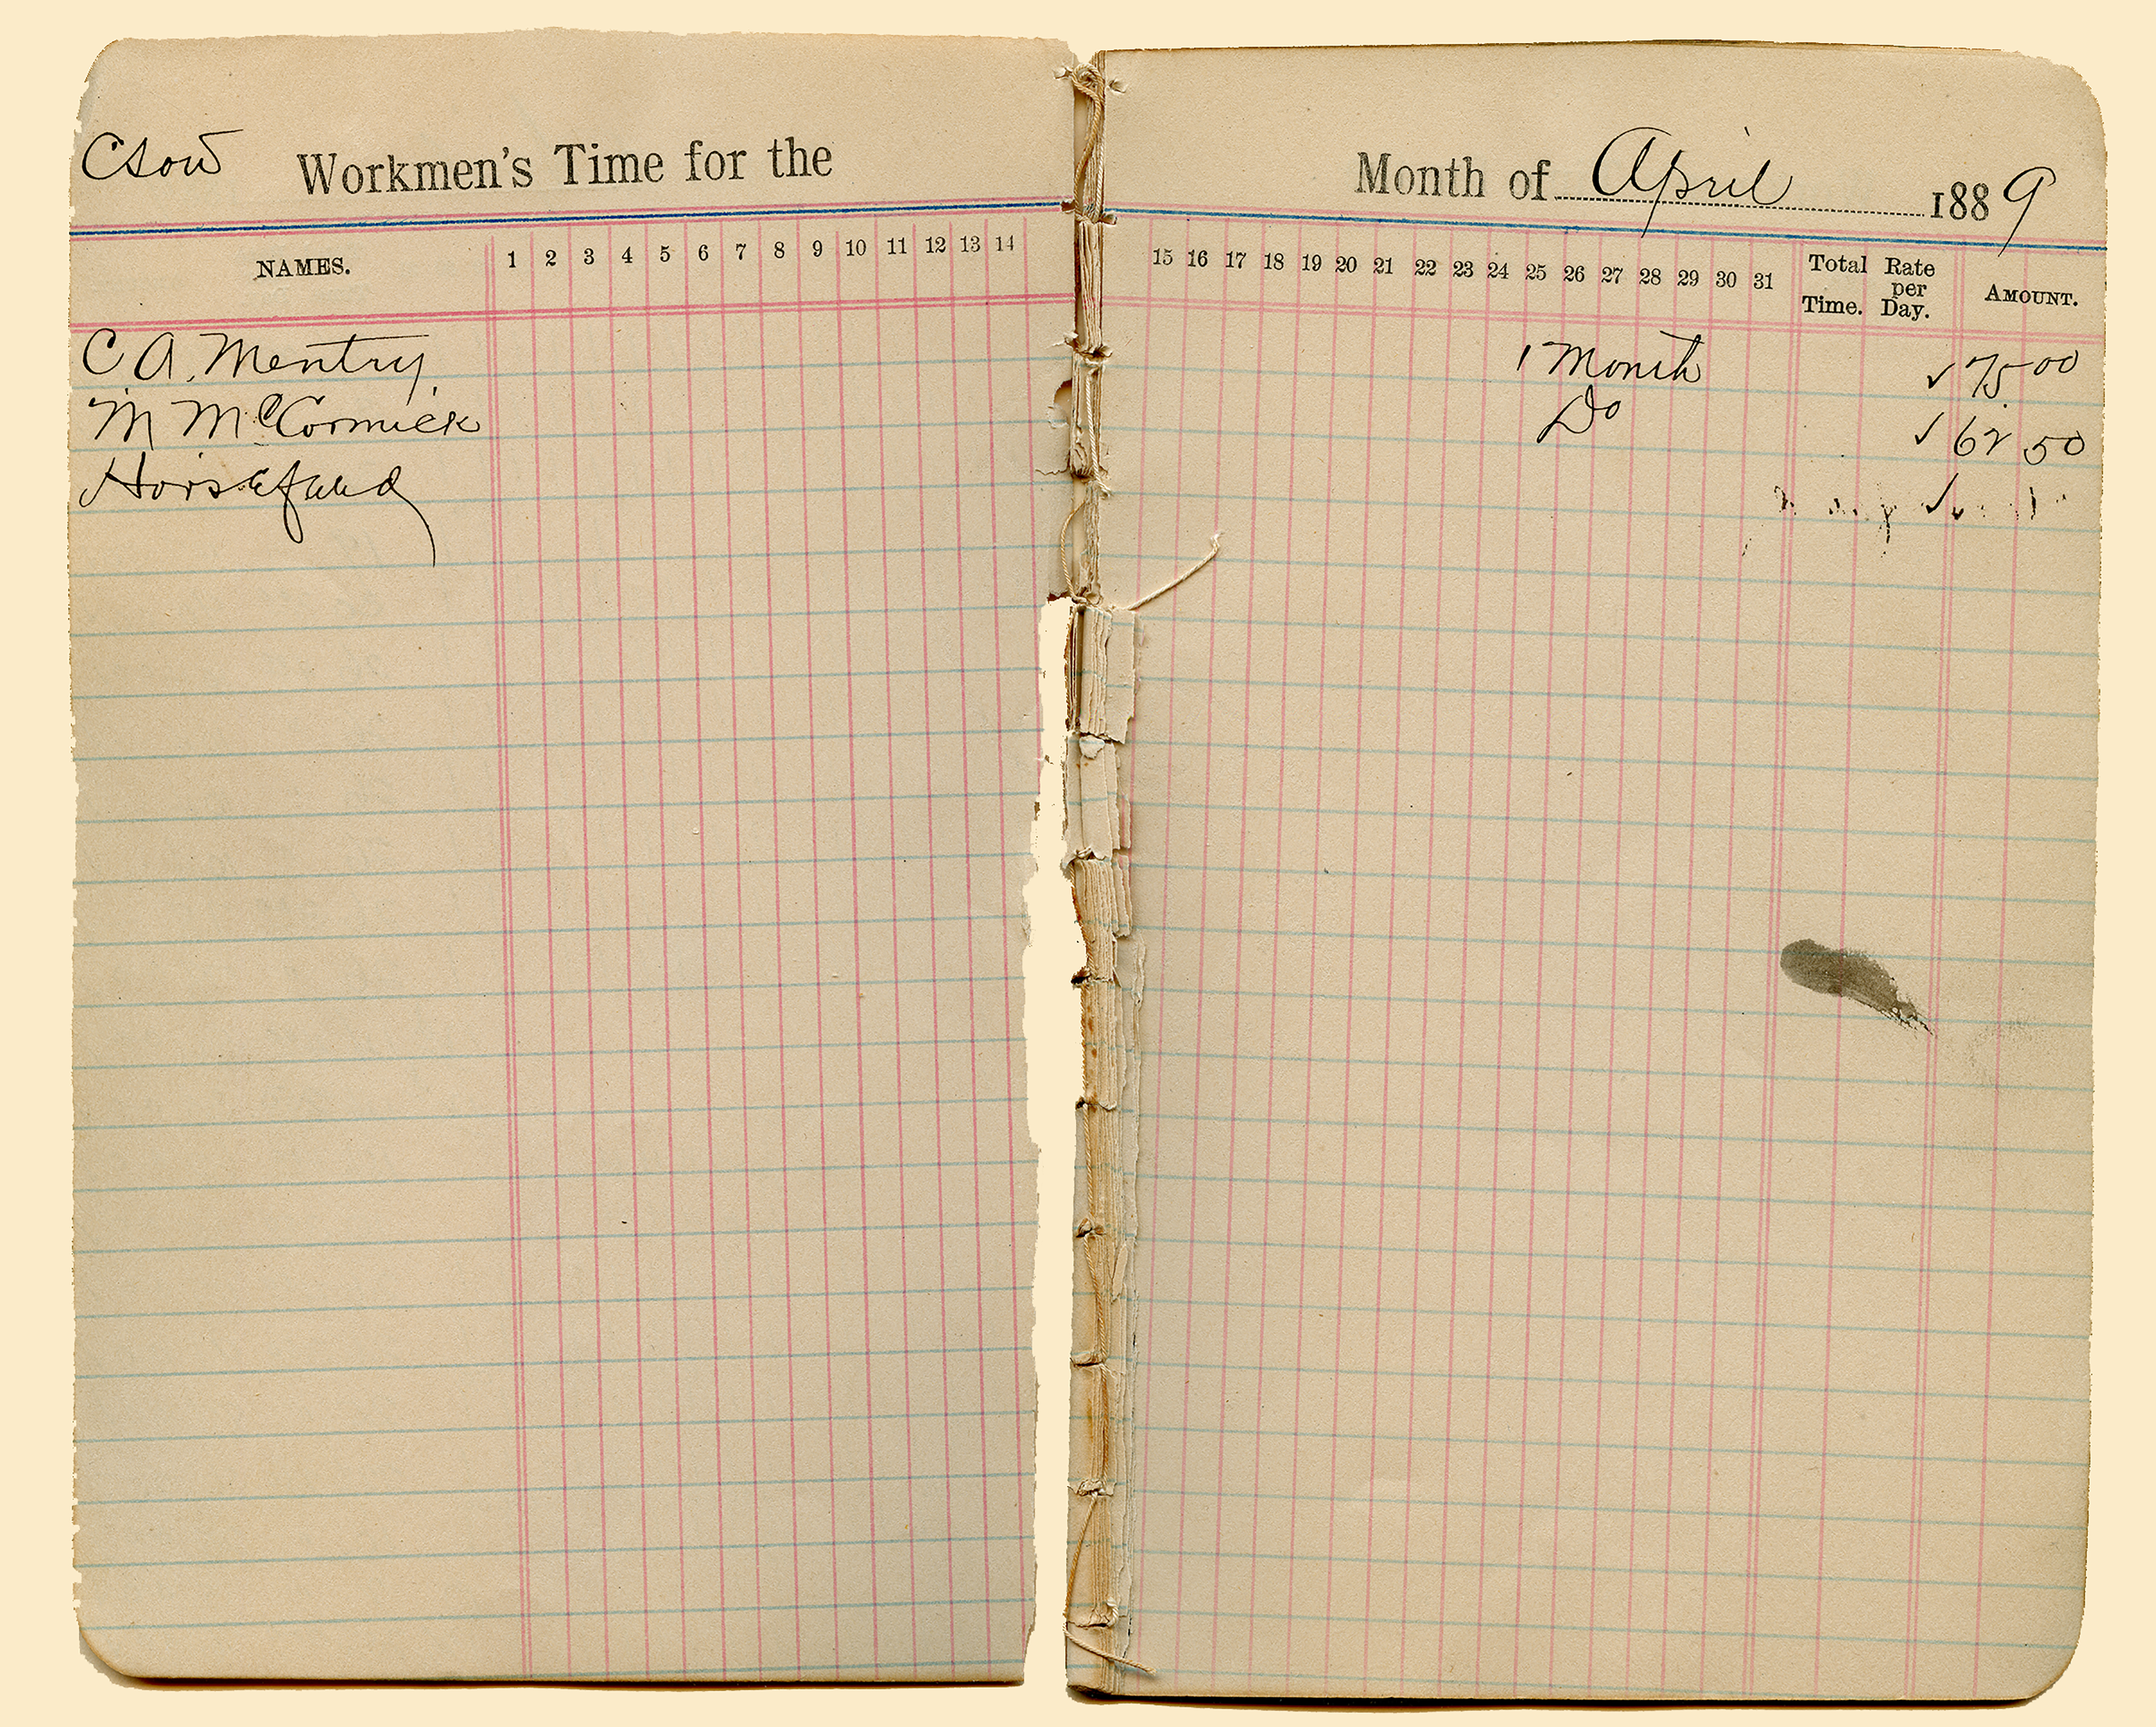 CSOW Workmen's Time for the Month of April 1889
NAMES. 1 2 3 4 5 6 7 8 9 10 11 12 13 14 15 16 17 18 19 20 21 22 23 24 25 26 27 28 29 30 31 Total Time. Rate per Day. AMOUNT.
C A. Mentry 1 Month ✓ 75 00
M McCormick Do ✓ 62 50
Horsefeed ✓